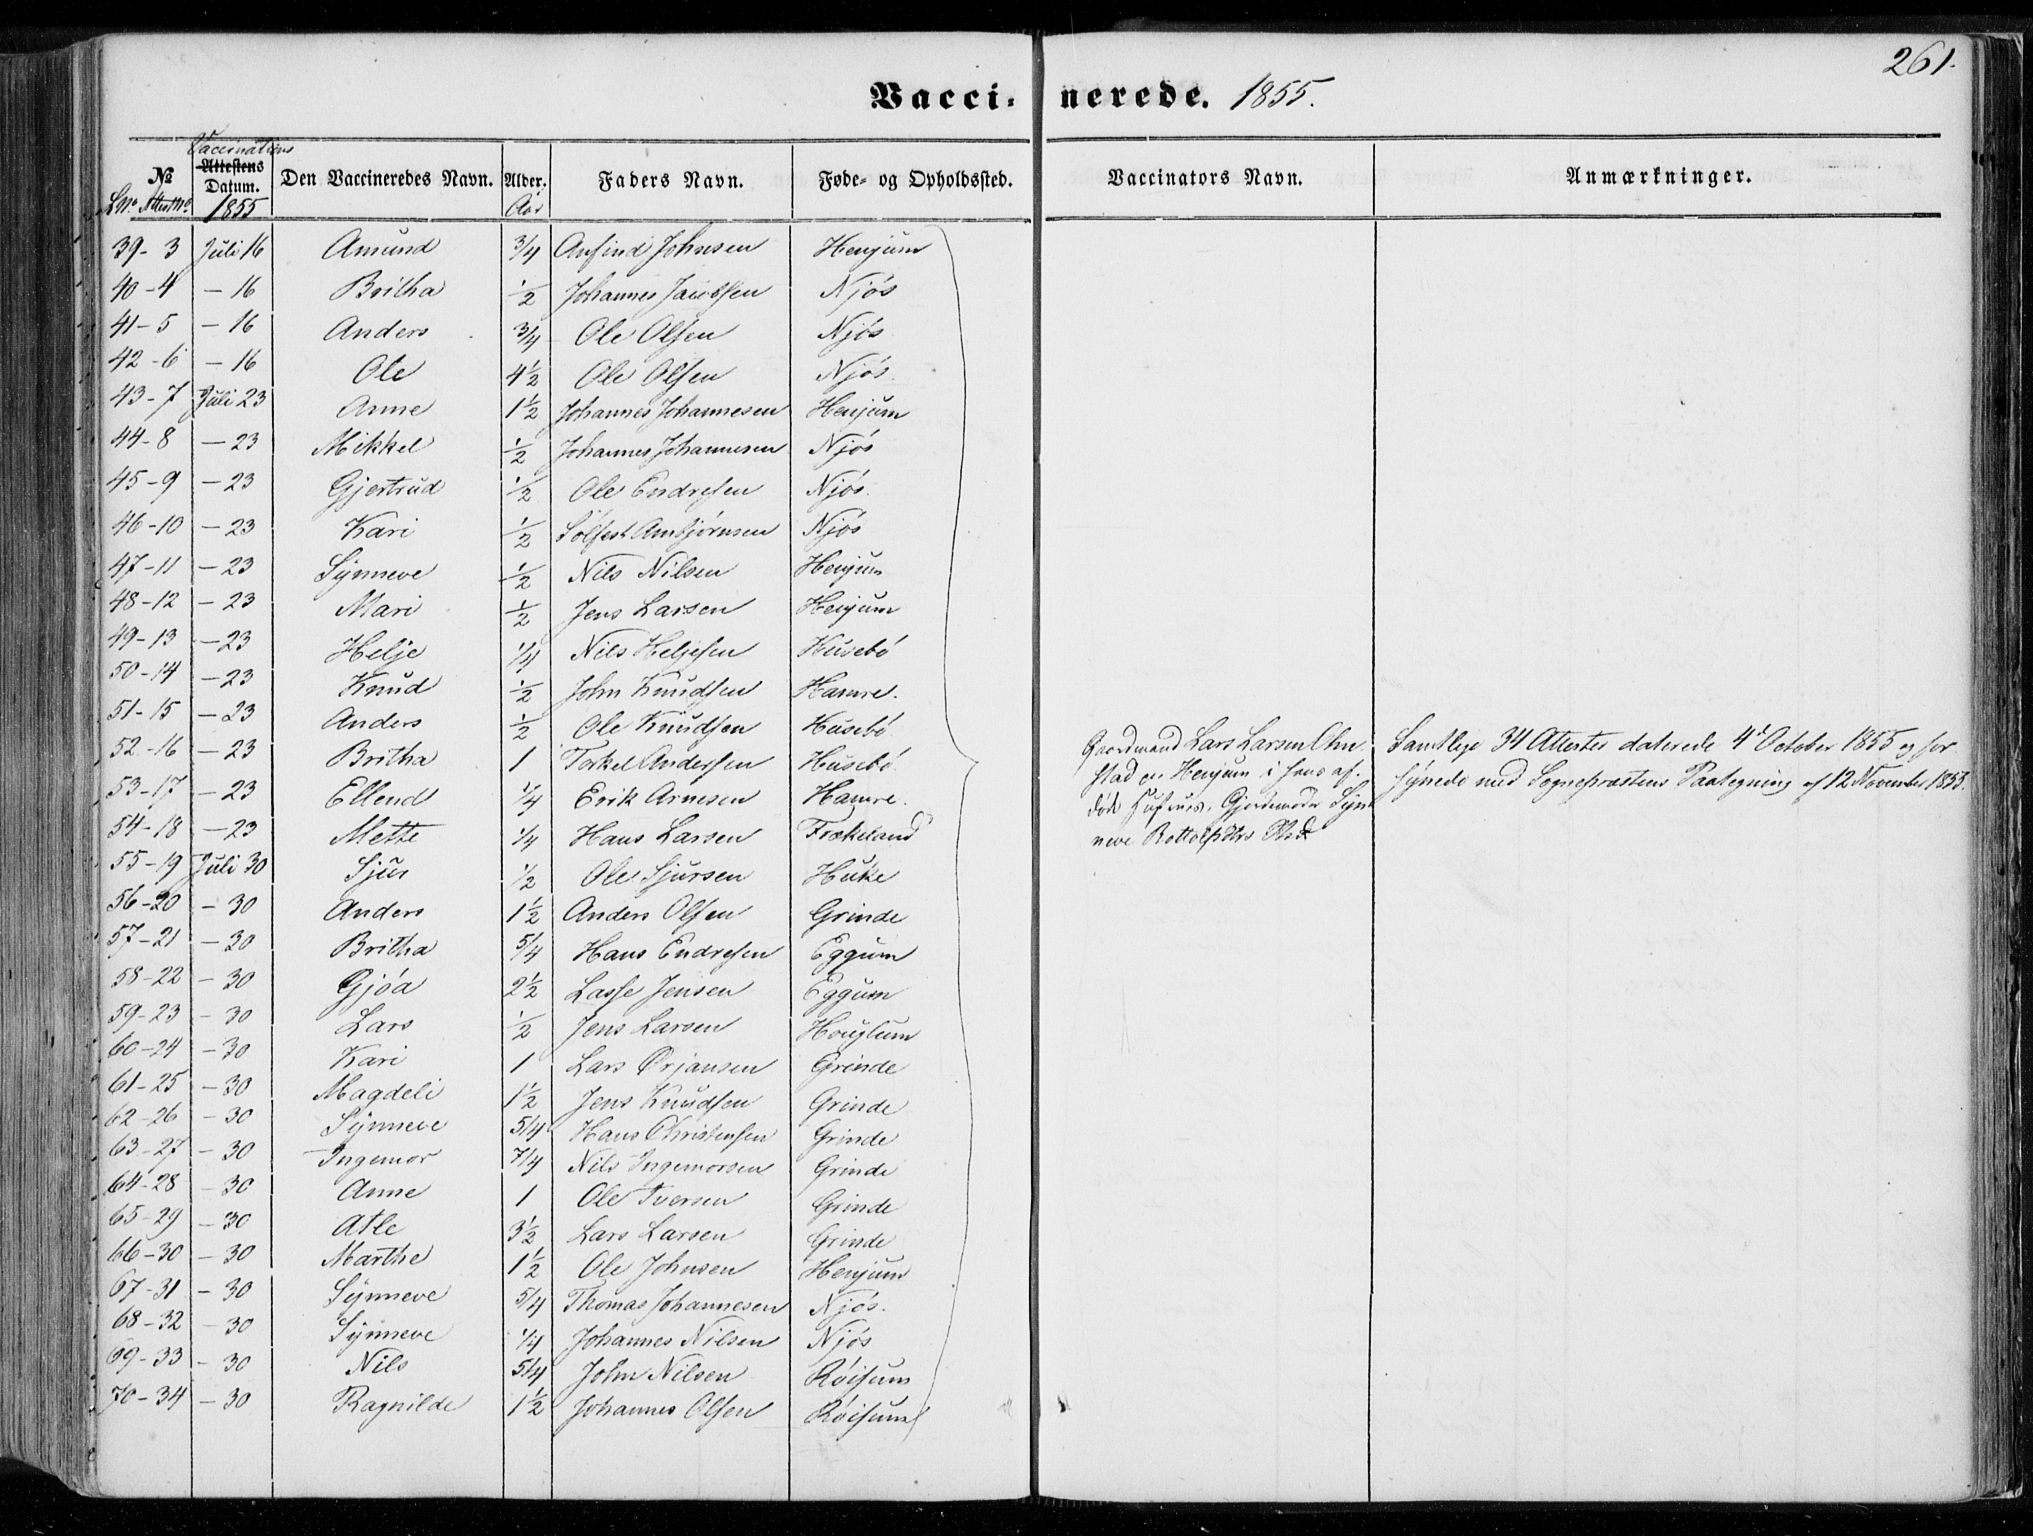 261.
Vaccinerede. 1855.
Vaccinations
№ Attestens Datum. Den Vaccineredes Navn. Alder. Faders Navn. Føde- og Opholdssted. Vaccinators Navn. Anmærkninger.
LNo AttestNo 1855 Aar
39-3 Juli 16 Amund 3/4 Anfind Johnsen Henjum
40-4 - 16 Britha 1/2 Johannes Jacobsen Njøs
41-5 - 16 Anders 3/4 Ole Olsen Njøs
42-6 - 16 Ole 4 1/2 Ole Olsen Njøs.
43-7 Juli 23 Anne 1 1/2 Johannes Johannesen Henjum
44-8 - 23 Mikkel 1/2 Johannes Johannesen Njøs
45-9 - 23 Gjertrud 1/2 Ole Endresen Njøs.
46-10 - 23 Kari 1/2 Sølfest Ambjørnsen Njøs
47-11 - 23 Synneve 1/2 Nils Nilsen Henjum
48-12 - 23 Mari 1/2 Jens Larsen Henjum
49-13 - 23 Helje 1/4 Nils Heljesen Husebø
50-14 - 23 Knud 1/2 John Knudsen Hamre.
51-15 - 23 Anders 1/2 Ole Knudsen Husebø
52-16 - 23 Britha 1 Torkel Andersen Husebø
53-17 - 23 Ellend 1/4 Erik Arnesen Hamre.
54-18 - 23 Mette 1/4 Hans Larsen Frækeland
55-19 Juli 30 Sjur 1/2 Ole Sjursen Huke
56-20 - 30 Anders 1 1/2 Anders Olsen Grinde
57-21 - 30 Britha 5/4 Hans Endresen Eggum
58-22 - 30 Gjøa 2 1/2 Lasse Jensen Eggum
59-23 - 30 Lars 1/2 Jens Larsen Houglum
60-24 - 30 Kari 1 Lars Ørjansen Grinde
61-25 - 30 Magdeli 1 1/2 Jens Knudsen Grinde
62-26 - 30 Synneve 5/4 Hans Christensen Grinde
63-27 - 30 Ingemor 7/4 Nils Ingemorsen Grinde
64-28 - 30 Anne 1 Ole Iversen Grinde
65-29 - 30 Atle 3 1/2 Lars Larsen Grinde
66-30 - 30 Marthe 1 1/2 Ole Johnsen Henjum
67-31 - 30 Synneve 5/4 Thomas Johannesen Njøs.
68-32 - 30 Synneve 1/4 Johannes Nilsen Njøs
69-33 - 30 Nils 5/4 John Nilsen Røisum
70-34 - 30 Ragnilde 1 1/2 Johannes Olsen Røisum
Gaardmand Lars Larsen
stad paa Henjum i hans af-
døde Hustrues, Gjordemoder Syn
neve Sted
Samtlige 34 Attester daterede 4de October 1855 og for
synede med Sognepræstens Paategning af 12 November 1855.